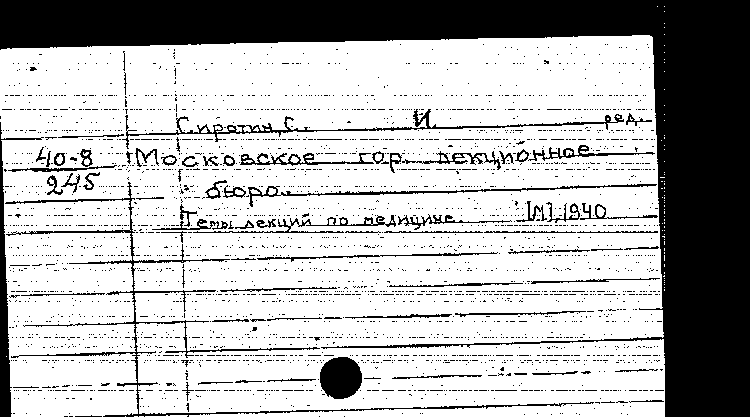 Сиротин, С. И. ред.
40-8 Московское гор. лекционное
245 бюро.
Темы лекций по медицине. [М], 1940